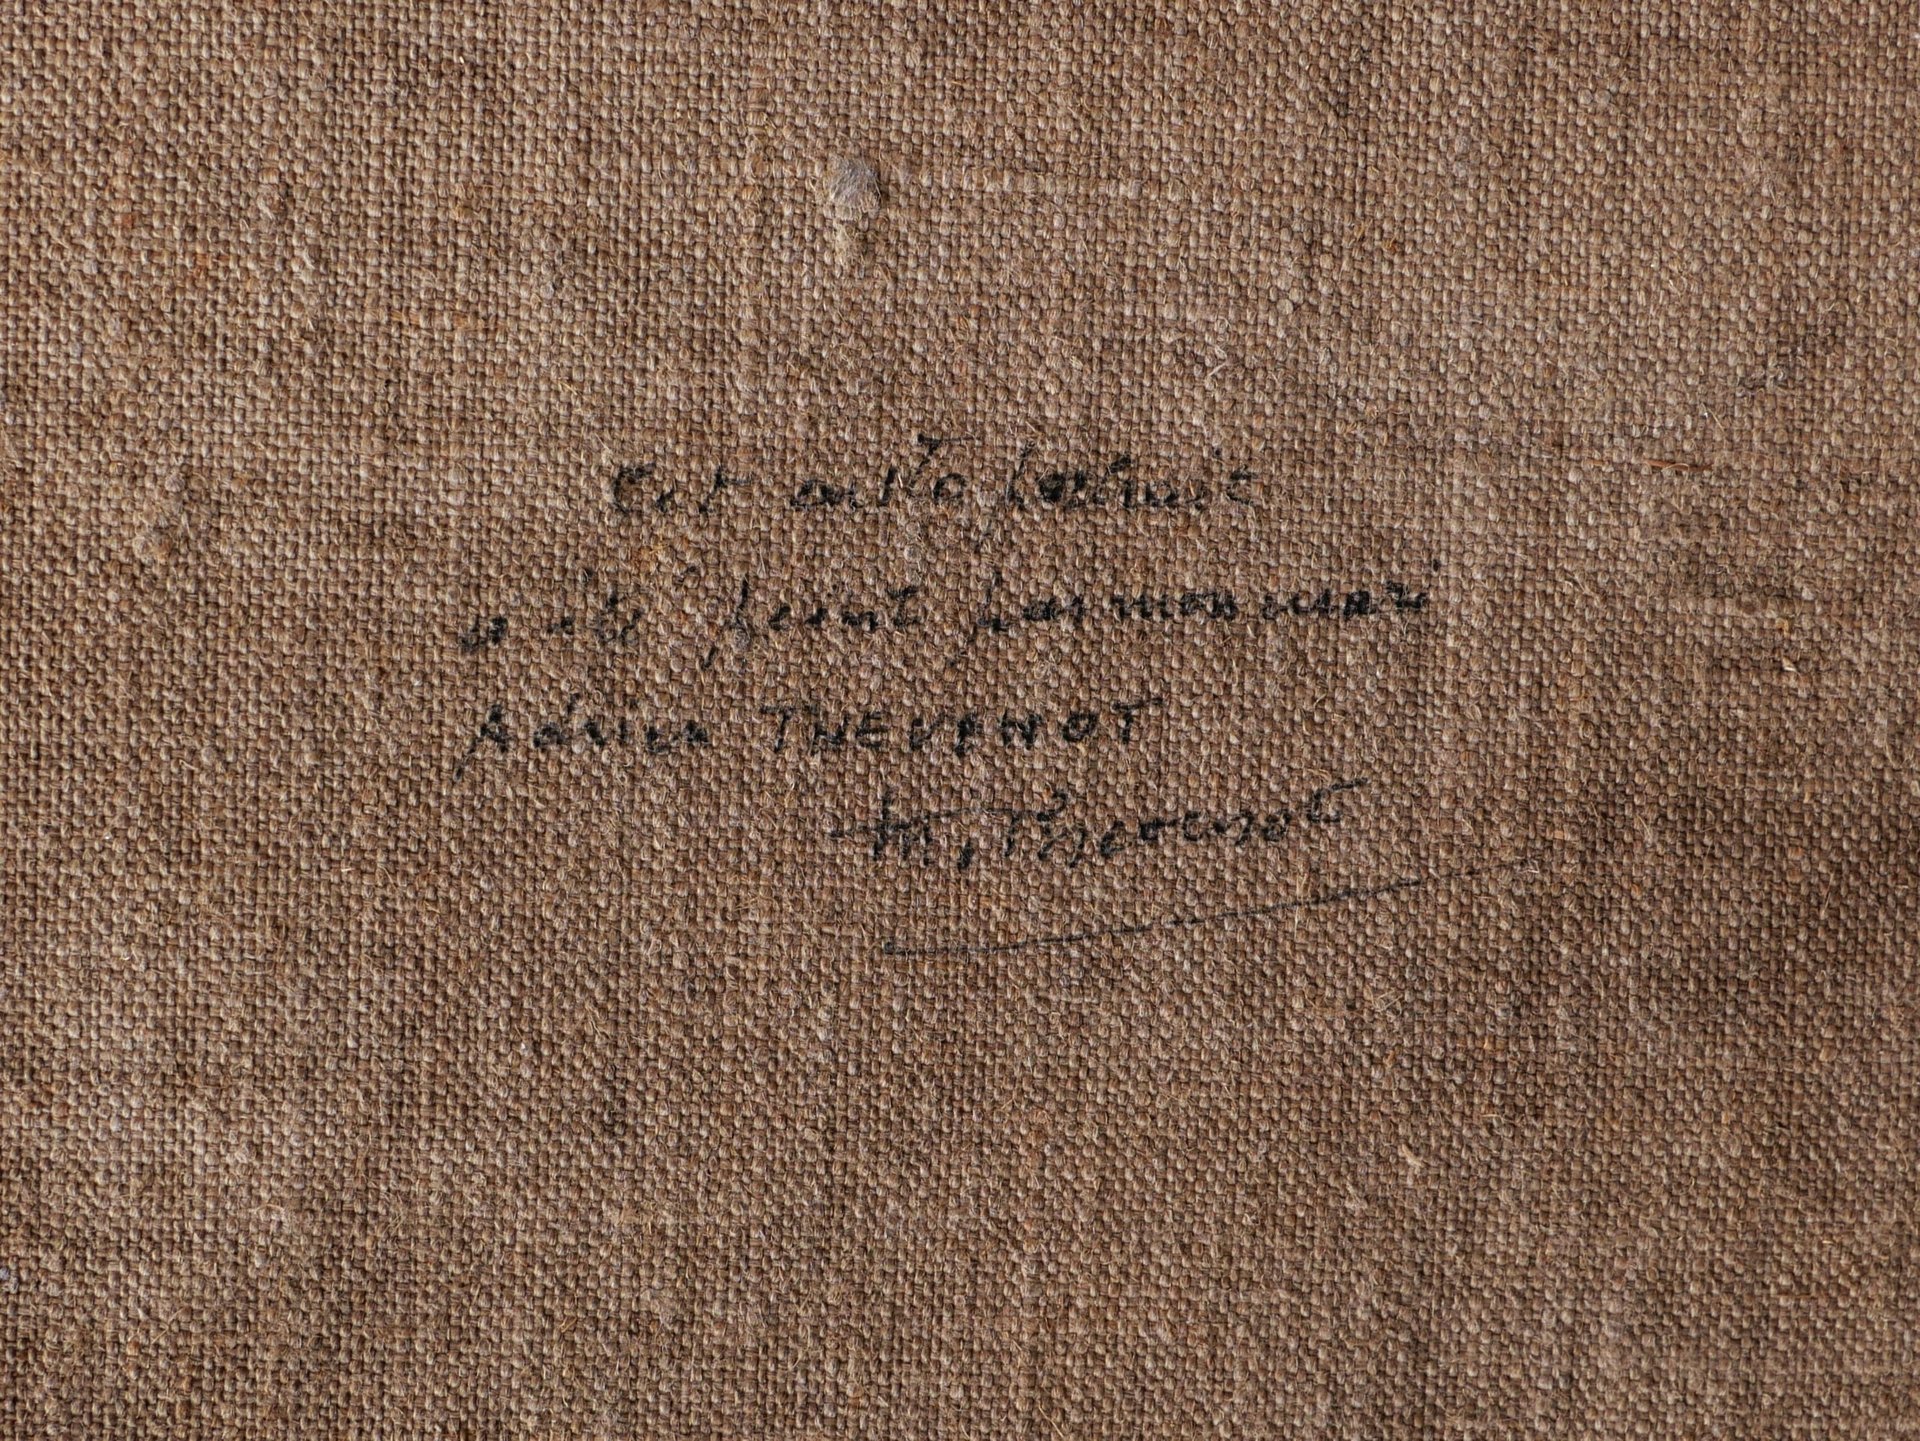 Cet auto portrait
a été peint par mon mari
Adrien THEVENOT
M. Thevenot